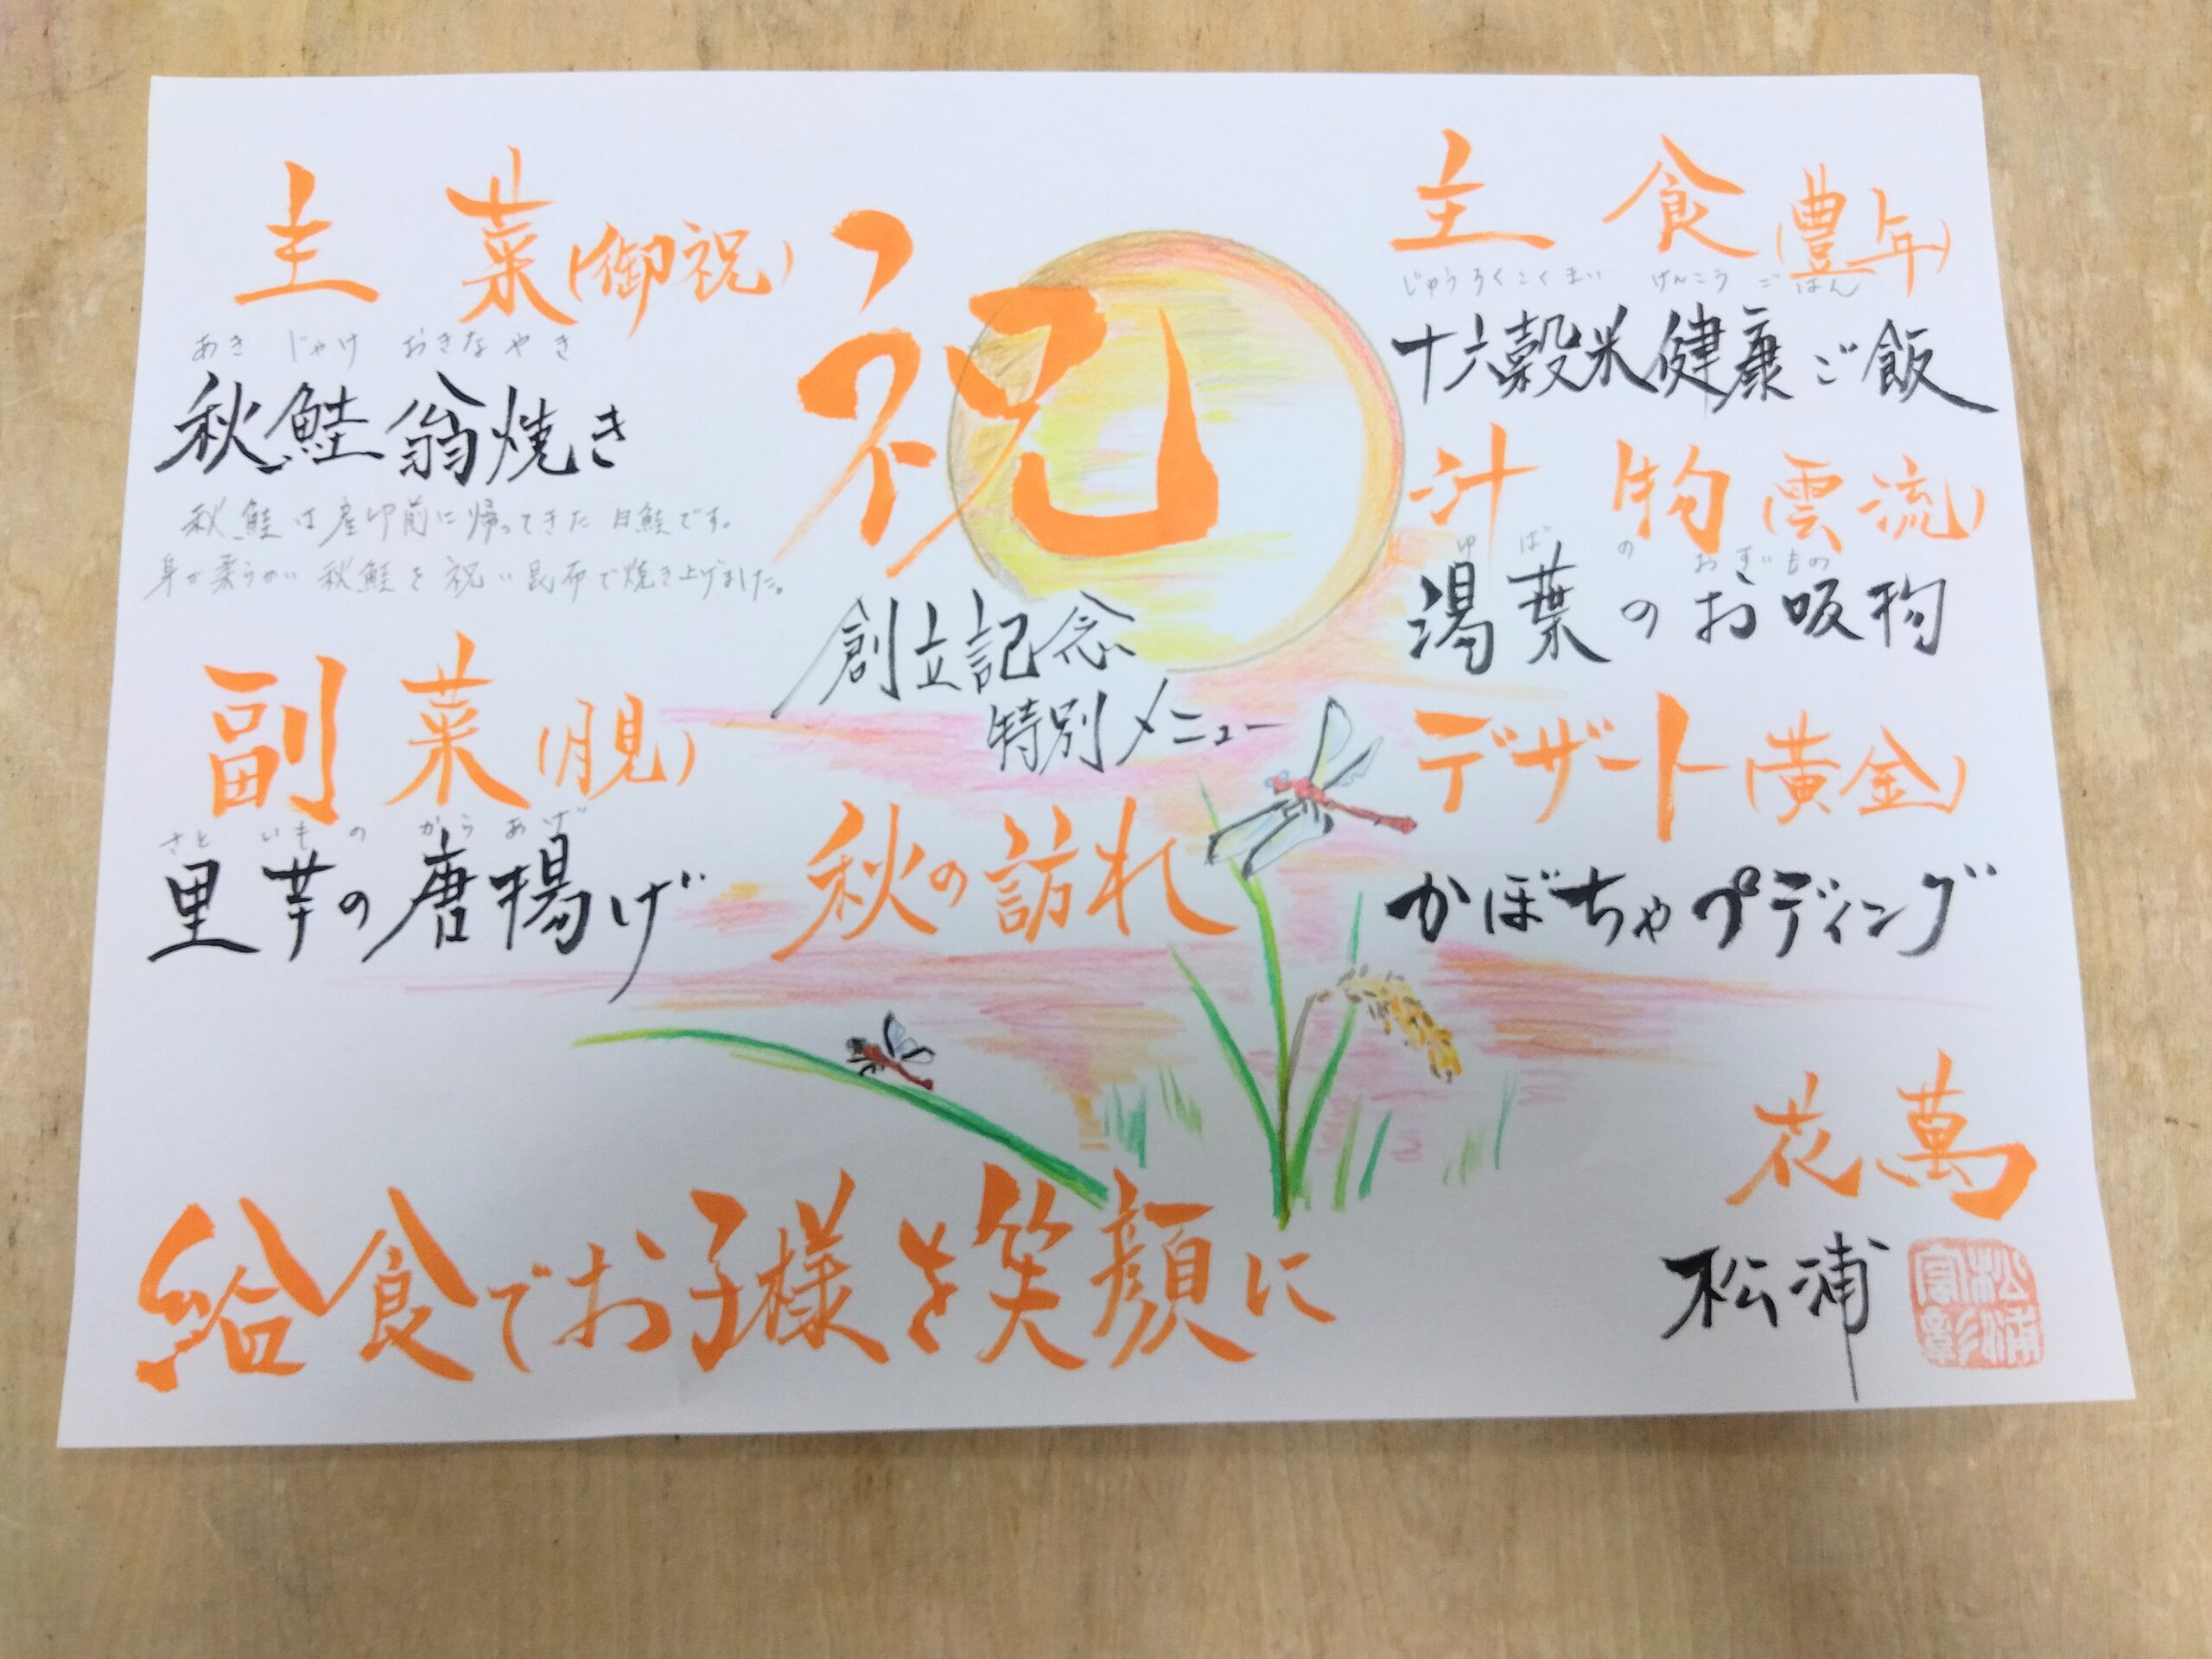 祝
創立記念
特別メニュー
秋の訪れ
主菜(御祝)
あき じゃけ おきなやき
秋鮭翁焼き
秋鮭は産卵前に帰ってきた白鮭です。
身が柔らかい秋鮭を祝い昆布で焼き上げました。
副菜(月見)
さと いも の から あげ
里芋の唐揚げ
主食(豊年)
じゅうろくこくまい げんこう ごはん
十六穀米健康ご飯
汁物(雲流)
ゆ ば の おすいもの
湯葉のお吸物
デザート(黄金)
かぼちゃプディング
給食でお子様を笑顔に
花萬
松浦